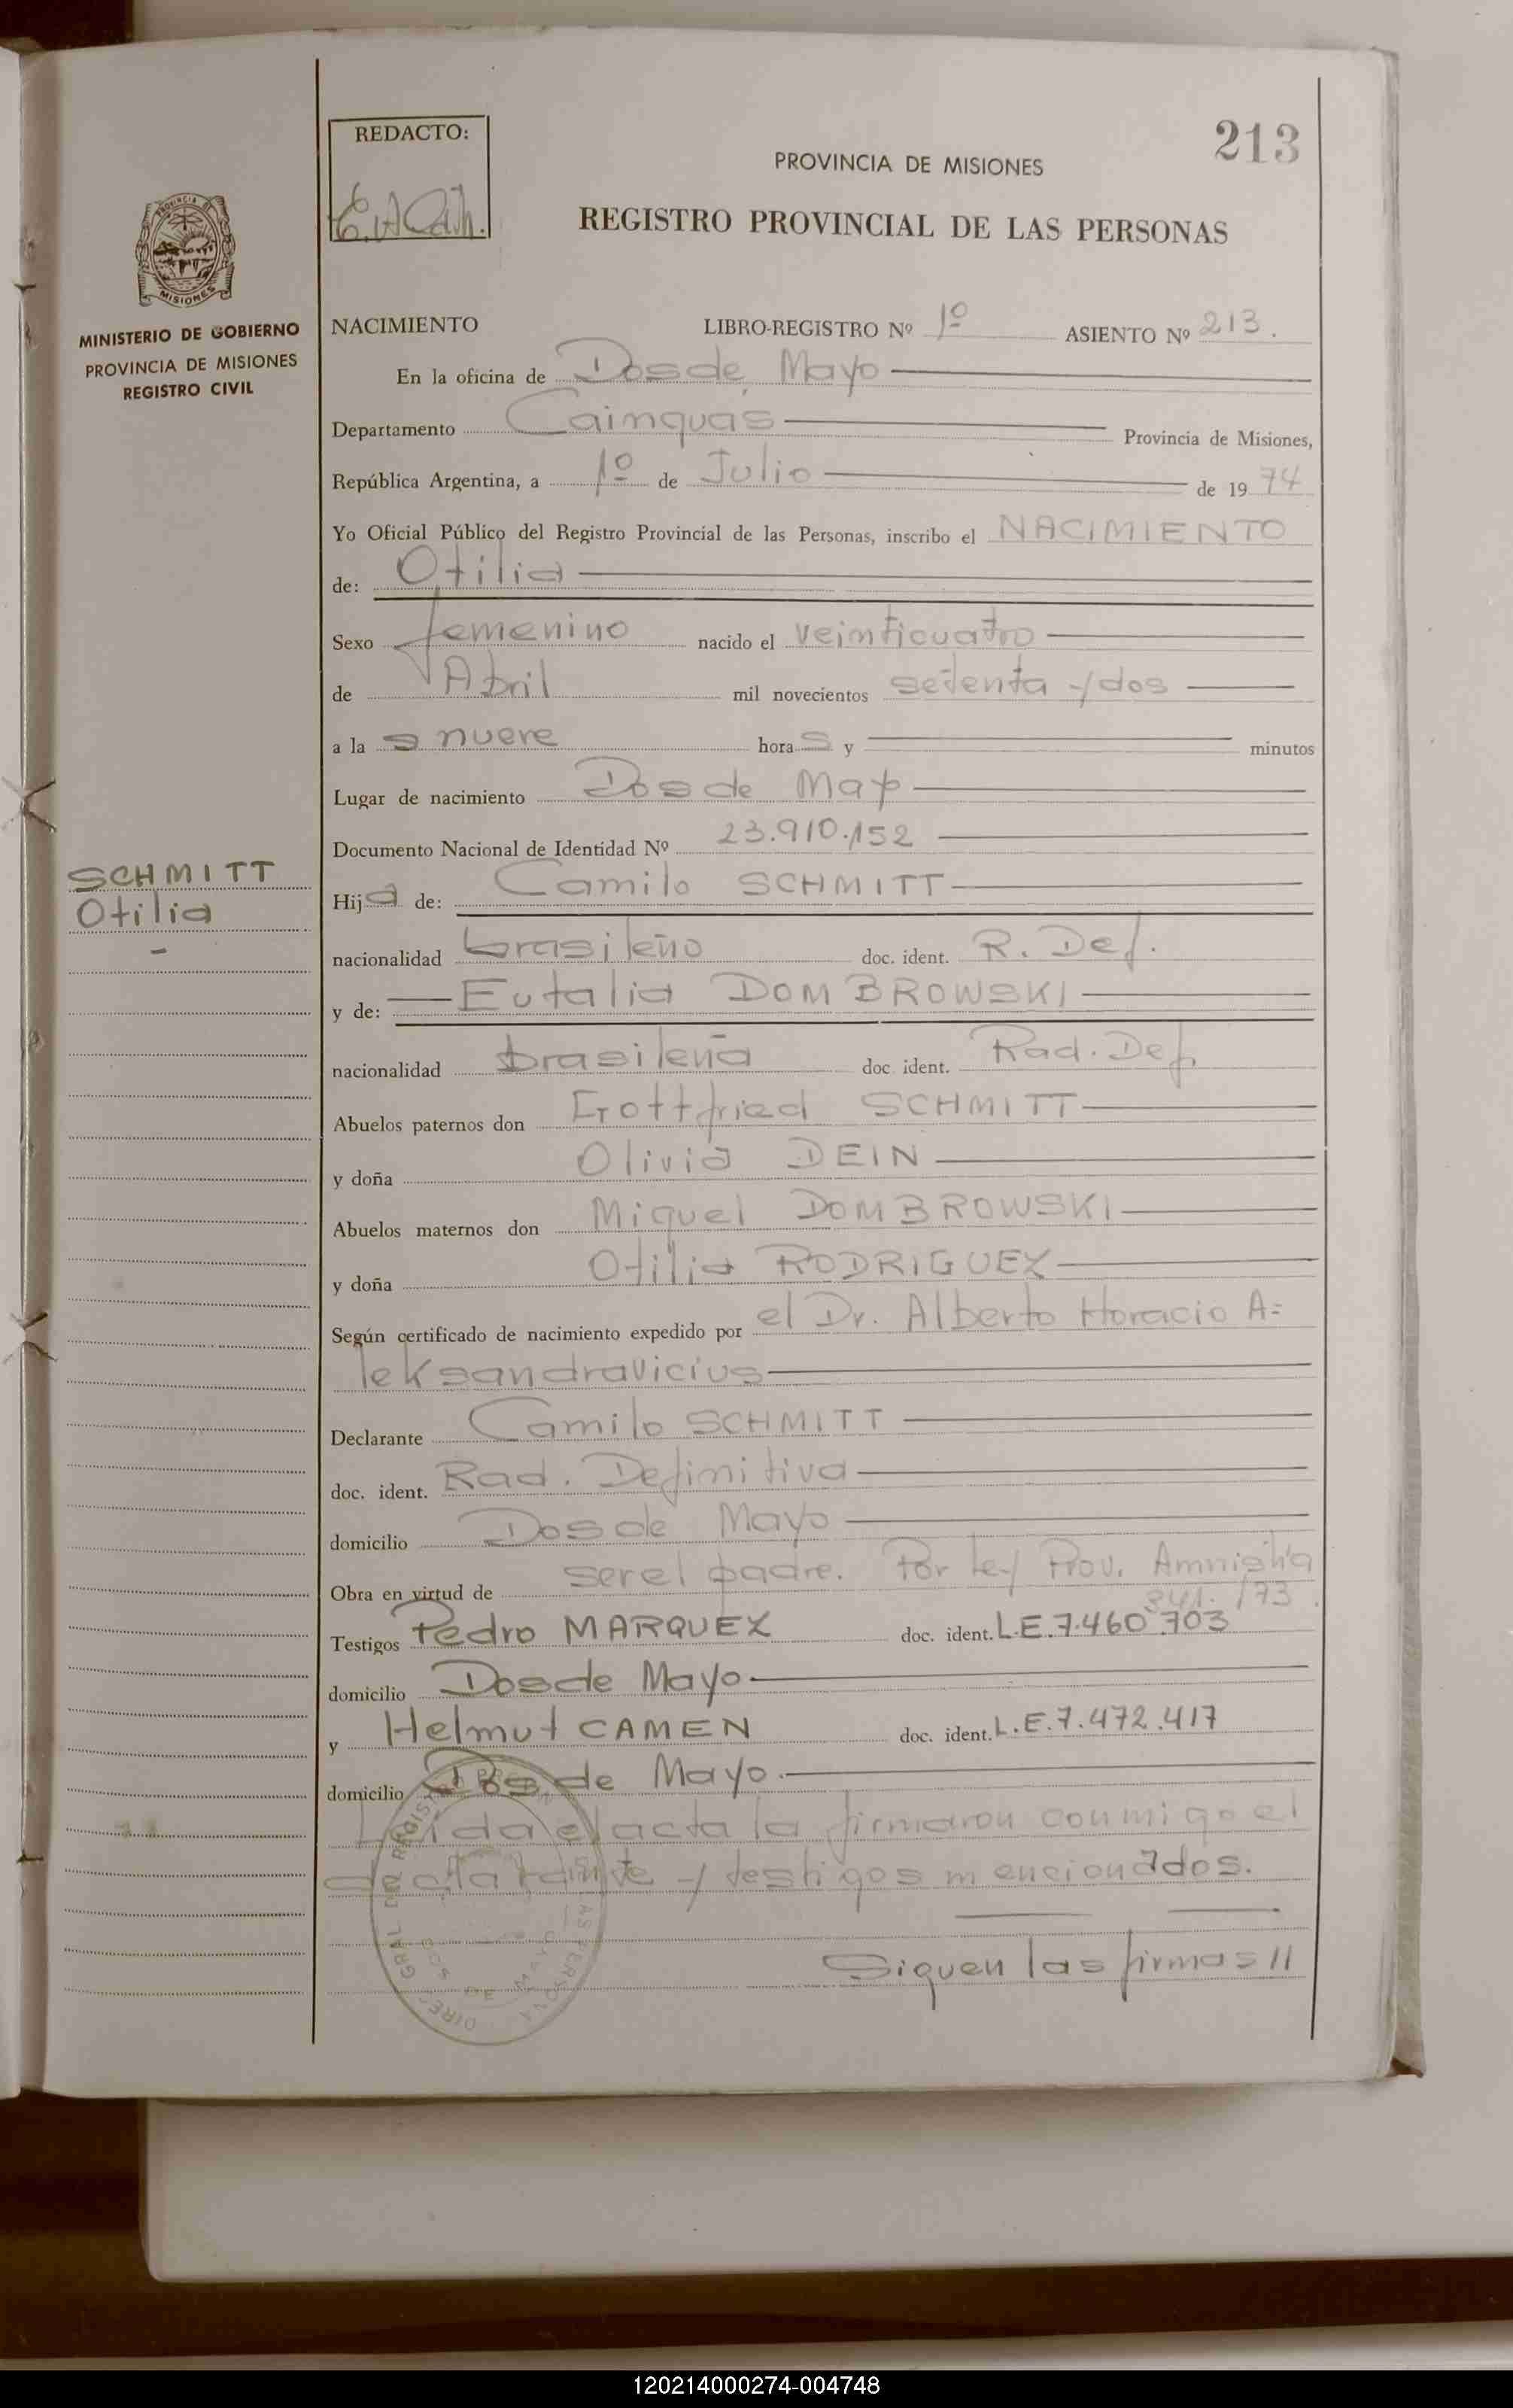 213
REDACTO:
PROVINCIA DE MISIONES
REGISTRO PROVINCIAL DE LAS PERSONAS
MISIONES
MINISTERIO DE GOBIERNO
PROVINCIA DE MISIONES
REGISTRO CIVIL
NACIMIENTO LIBRO-REGISTRO Nº 1º ASIENTO Nº 213.
En la oficina de Dos de Mayo
Departamento Cainguas Provincia de Misiones,
República Argentina, a 1º de Julio de 19 74
Yo Oficial Público del Registro Provincial de las Personas, inscribo el NACIMIENTO
de: Otilia
Sexo femenino nacido el veinticuatro
de Abril mil novecientos setenta y dos
a la s nueve hora s y minutos
Lugar de nacimiento Dos de Mayo
Documento Nacional de Identidad Nº 23.910.152
SCHMITT
Otilia
-
Hij a de: Camilo SCHMITT
nacionalidad brasileño doc. ident. R. Def.
y de: Eutalia DOMBROWSKI
nacionalidad brasileña doc. ident. Rad. Def.
Abuelos paternos don Gottfried SCHMITT
y doña Olivia DEIN
Abuelos maternos don Miguel DOMBROWSKI
y doña Otilia RODRIGUEZ
Según certificado de nacimiento expedido por el Dr. Alberto Horacio A=
leksandravicius
Declarante Camilo SCHMITT
doc. ident. Rad. Definitiva
domicilio Dos de Mayo
Obra en virtud de ser el padre. Por Ley Prov. Amnistia
341./73.
Testigos Pedro MARQUEZ doc. ident. L.E.7.460.703
domicilio Dos de Mayo
y Helmut CAMEN doc. ident. L.E.7.472.417
domicilio Dos de Mayo.
Leida el acta la firmaron conmigo el
declarante y testigos mencionados.
Siguen las firmas//
120214000274-004748